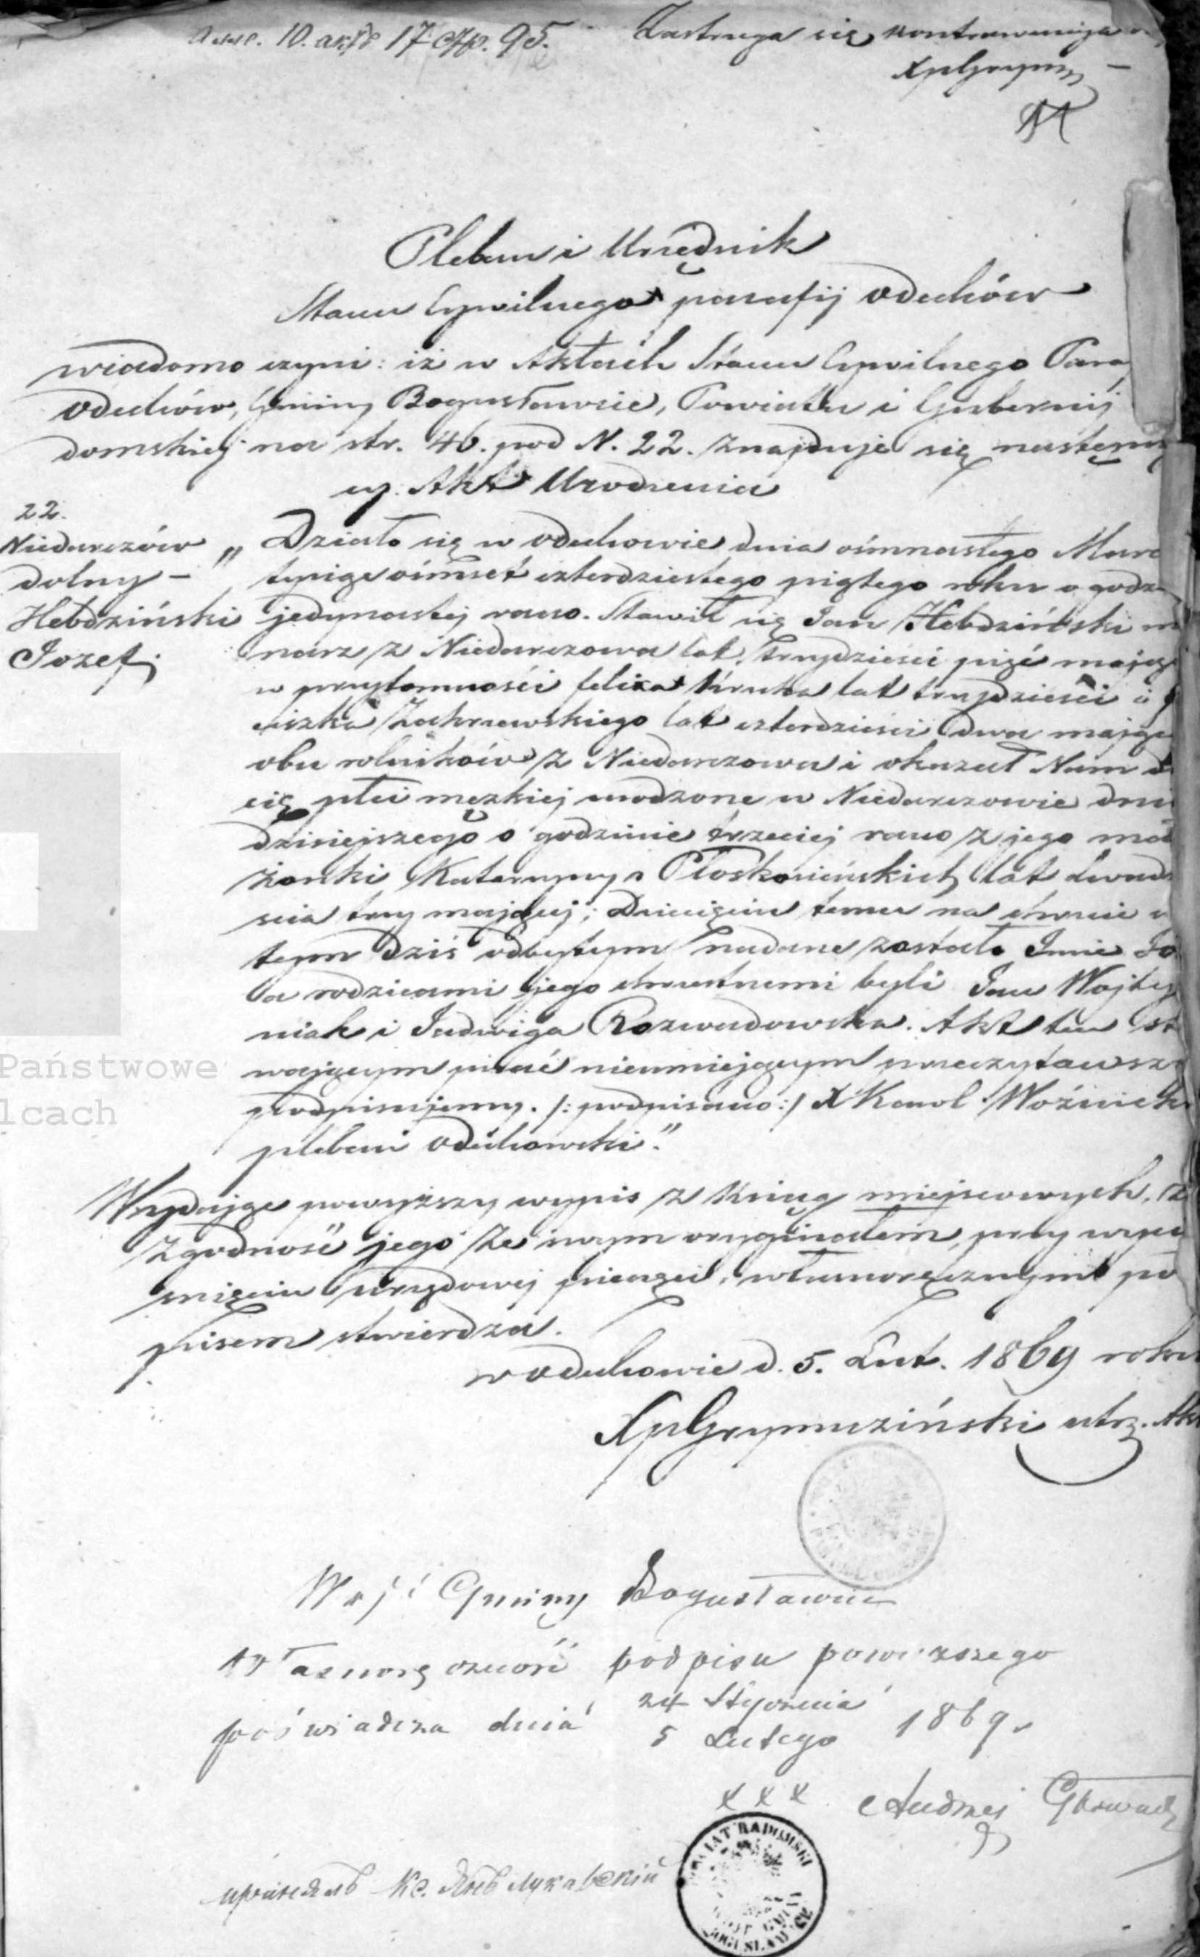 10. 17 95.
Zastrzega się
XpGrymu
Pleban i Urzędnik
Stanu Cywilnego parafij Odechów
wiadomo czyni: iż w Aktach Stanu Cywilnego Para
Odechów, Gminy Bogusławice, Powiatu i Gubernij
domskiej na str. 46. pod N. 22. znajduje się następu
cy. Akt Urodzenia
22.
Niedarczów
dolny –
Hebdziński
Jozef
„Działo się w Odechowie dnia ośmnastego Marc
tysiąc ośmset czterdziestego piątego roku o godz
jedynastej rano. Stawił się Jan Hebdziński
narz z Niedarczowa lat trzydzieści pięć mając
w przytomności felixa Kruka lat trzydzieści i
ciszka Zachrzewskiego lat czterdzieści dwa mając
obu rolników z Niedarczowa i okazał Nam d
cię płci męzkiej urodzone w Niedarczowie dni
dzisiejszego o godzinie trzeciej rano z jego mał
żonki Katarzyny z Płoskonieńskich lat dwadz
ścia trzy mającej; Dziecięciu temu na chrzcie
tym dziś odbytym nadane zostało Imie Jó
a rodzicami jego chrzestnemi byli Jan Wojty
niak i Jadwiga Rozwadowska. Akt ten st
wającym pisać nieumiejącym przeczytawszy
podpisujemy. /: podpisano :/ X Karol Woźnick
pleban Odechowski."
Wydając powyższy wypis z ksiąg miejscowych,
zgodność jego ze swym oryginałem, przy wyci
śnięciu urzędowej pieczęci, własnoręcznym po
pisem stwierdza.
w Odechowie d. 5. Lut. 1869 roku
XpGrymuziński utrz. Akt
Wójt Gminy Bogusławice
Własnoręczność podpisu powyższego
poświadcza dnia 24 Stycznia
5 Lutego 1869.
x x x Andrzej
POWIAT RADOMSKI
WÓJT GMINY
BOGUSŁAWICE
Кс. Янъ
Państwowe
lcach